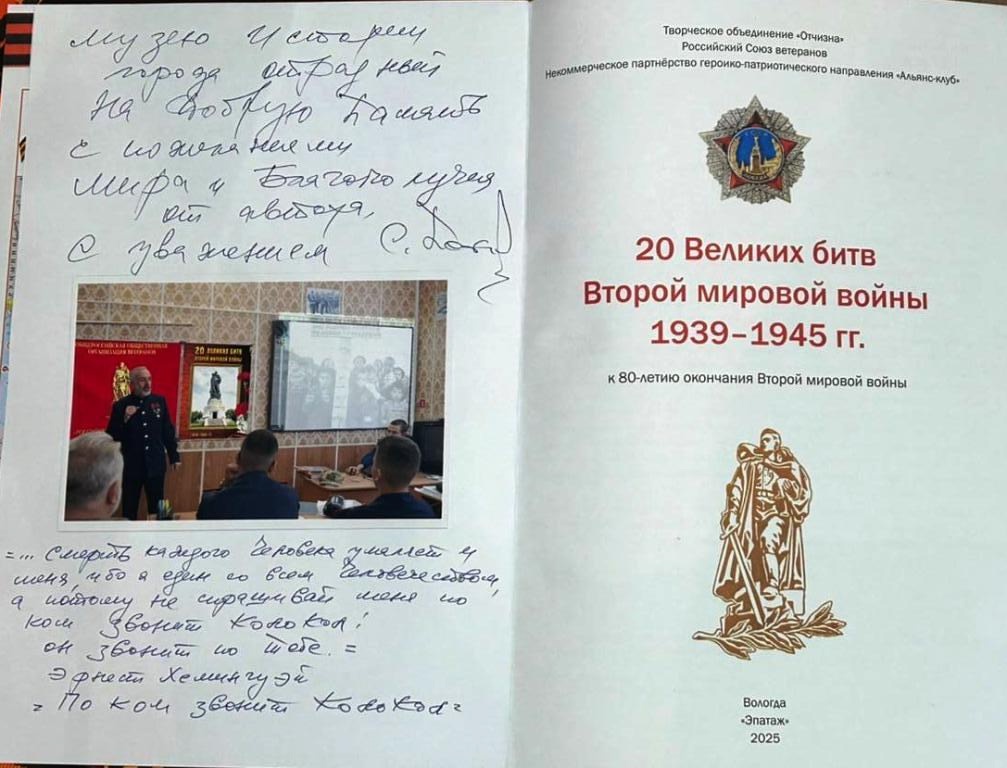 музею истории
города отрадный
На Добрую Память
с пожеланиями
мира и Благополучия
от автора,
С уважением С.
ОБЩЕРОССИЙСКАЯ ОБЩЕСТВЕННАЯ
ОРГАНИЗАЦИЯ ВЕТЕРАНОВ
20 ВЕЛИКИХ БИТВ
ВТОРОЙ МИРОВОЙ ВОЙНЫ
=... смерть каждого Человека умаляет и
меня, ибо я един со всем Человечеством,
а потому не спрашивай меня по
ком звонит Колокол!
он звонит по Тебе. =
Эрнест Хемингуэй
= По ком звонит Колокол =
Творческое объединение «Отчизна»
Российский Союз ветеранов
Некоммерческое партнёрство героико-патриотического направления «Альянс-клуб»
20 Великих битв
Второй мировой войны
1939–1945 гг.
к 80-летию окончания Второй мировой войны
Вологда
«Эпатаж»
2025